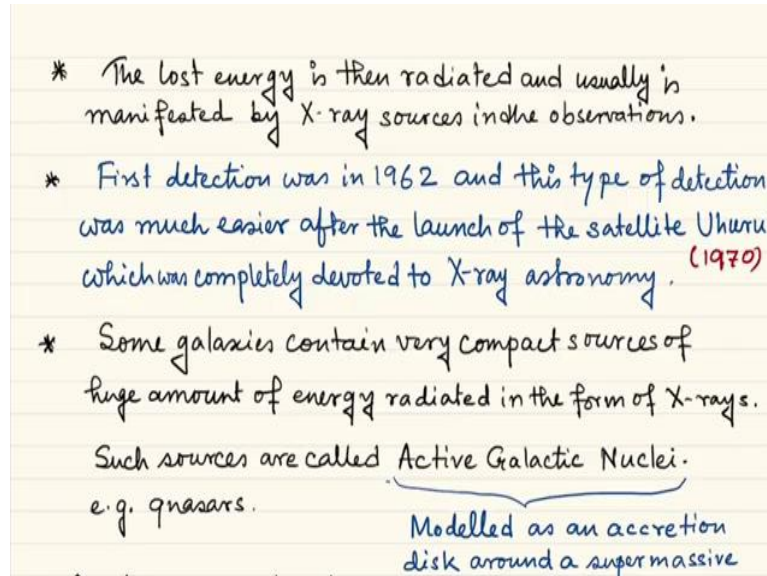 * The lost energy is then radiated and usually is
manifested by X-ray sources in the observations.
* First detection was in 1962 and this type of detection
was much easier after the launch of the satellite Uhuru
(1970)
which was completely devoted to X-ray astronomy.
* Some galaxies contain very compact sources of
huge amount of energy radiated in the form of X-rays.
Such sources are called Active Galactic Nuclei.
e.g. quasars.
Modelled as an accretion
disk around a supermassive